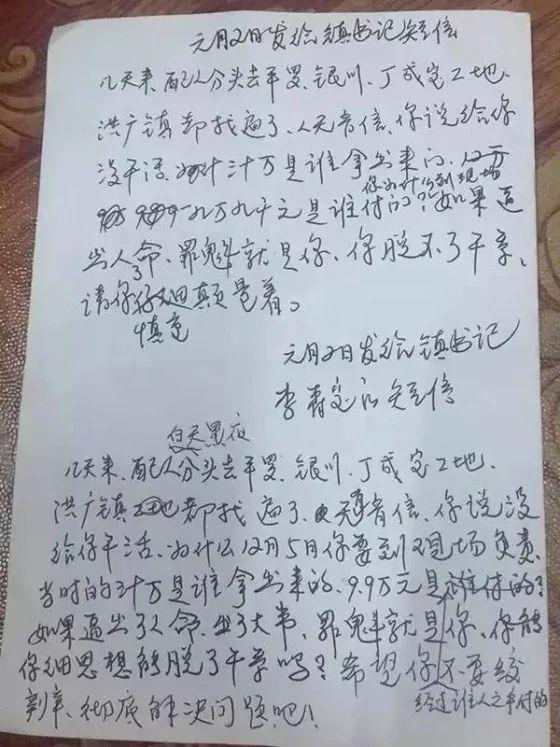 元月2日发给镇书记短信
几天来、配人分头去平罗、银川、丁成宝工地、
洪广镇都找遍了、人无音信、你说给你
没干活、为什 汁万是谁拿出来的、12万
你为什么到现场
一九万九千元是谁付的?如果逼
出人命、罪魁就是你、你脱不了干系。
了
请你仔细颠量着。
慎重
元月2日发给镇书记
李 宝 短信
白天黑夜
几天来、配人分头去平罗、银川、丁成宝工地、
洪广镇 都找遍了、无音信、你说没
给你干活、为什么12月5日你要到现场负责、
当时的汁万是谁拿出来的、9.9万元是谁付的?
如果逼出了人命、出了大事、罪魁就是你、你能
仔细思想能脱了干系吗?希望你不要绞
经过谁人之手付的
割 、彻底解决问题吧!